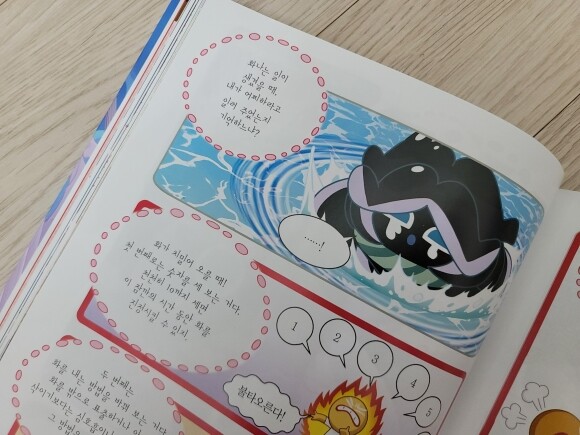 화나는 일이
생겼을 때,
내가 어찌하라고
일러 주었는지
기억하느냐?
······!
화가 치밀어 오를 때!
첫 번째로는 숫자를 세 보는 거다.
천천히 10까지 세면
이 잠깐의 시간 동안 화를
진정시킬 수 있어.
1
2
3
4
5
불타오른다!
두 번째는
화를 내는 방법을 바꿔 보는 거다.
화를 밖으로 표출하거나